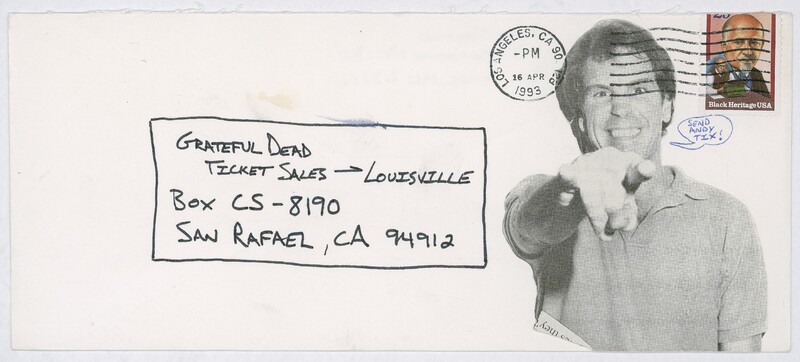 LOS ANGELES, CA 90
-PM
16 APR
1993
Black Heritage USA
SEND
ANDY
TIX!
GRATEFUL DEAD
TICKET SALES → LOUISVILLE
BOX CS-8190
SAN RAFAEL, CA 94912